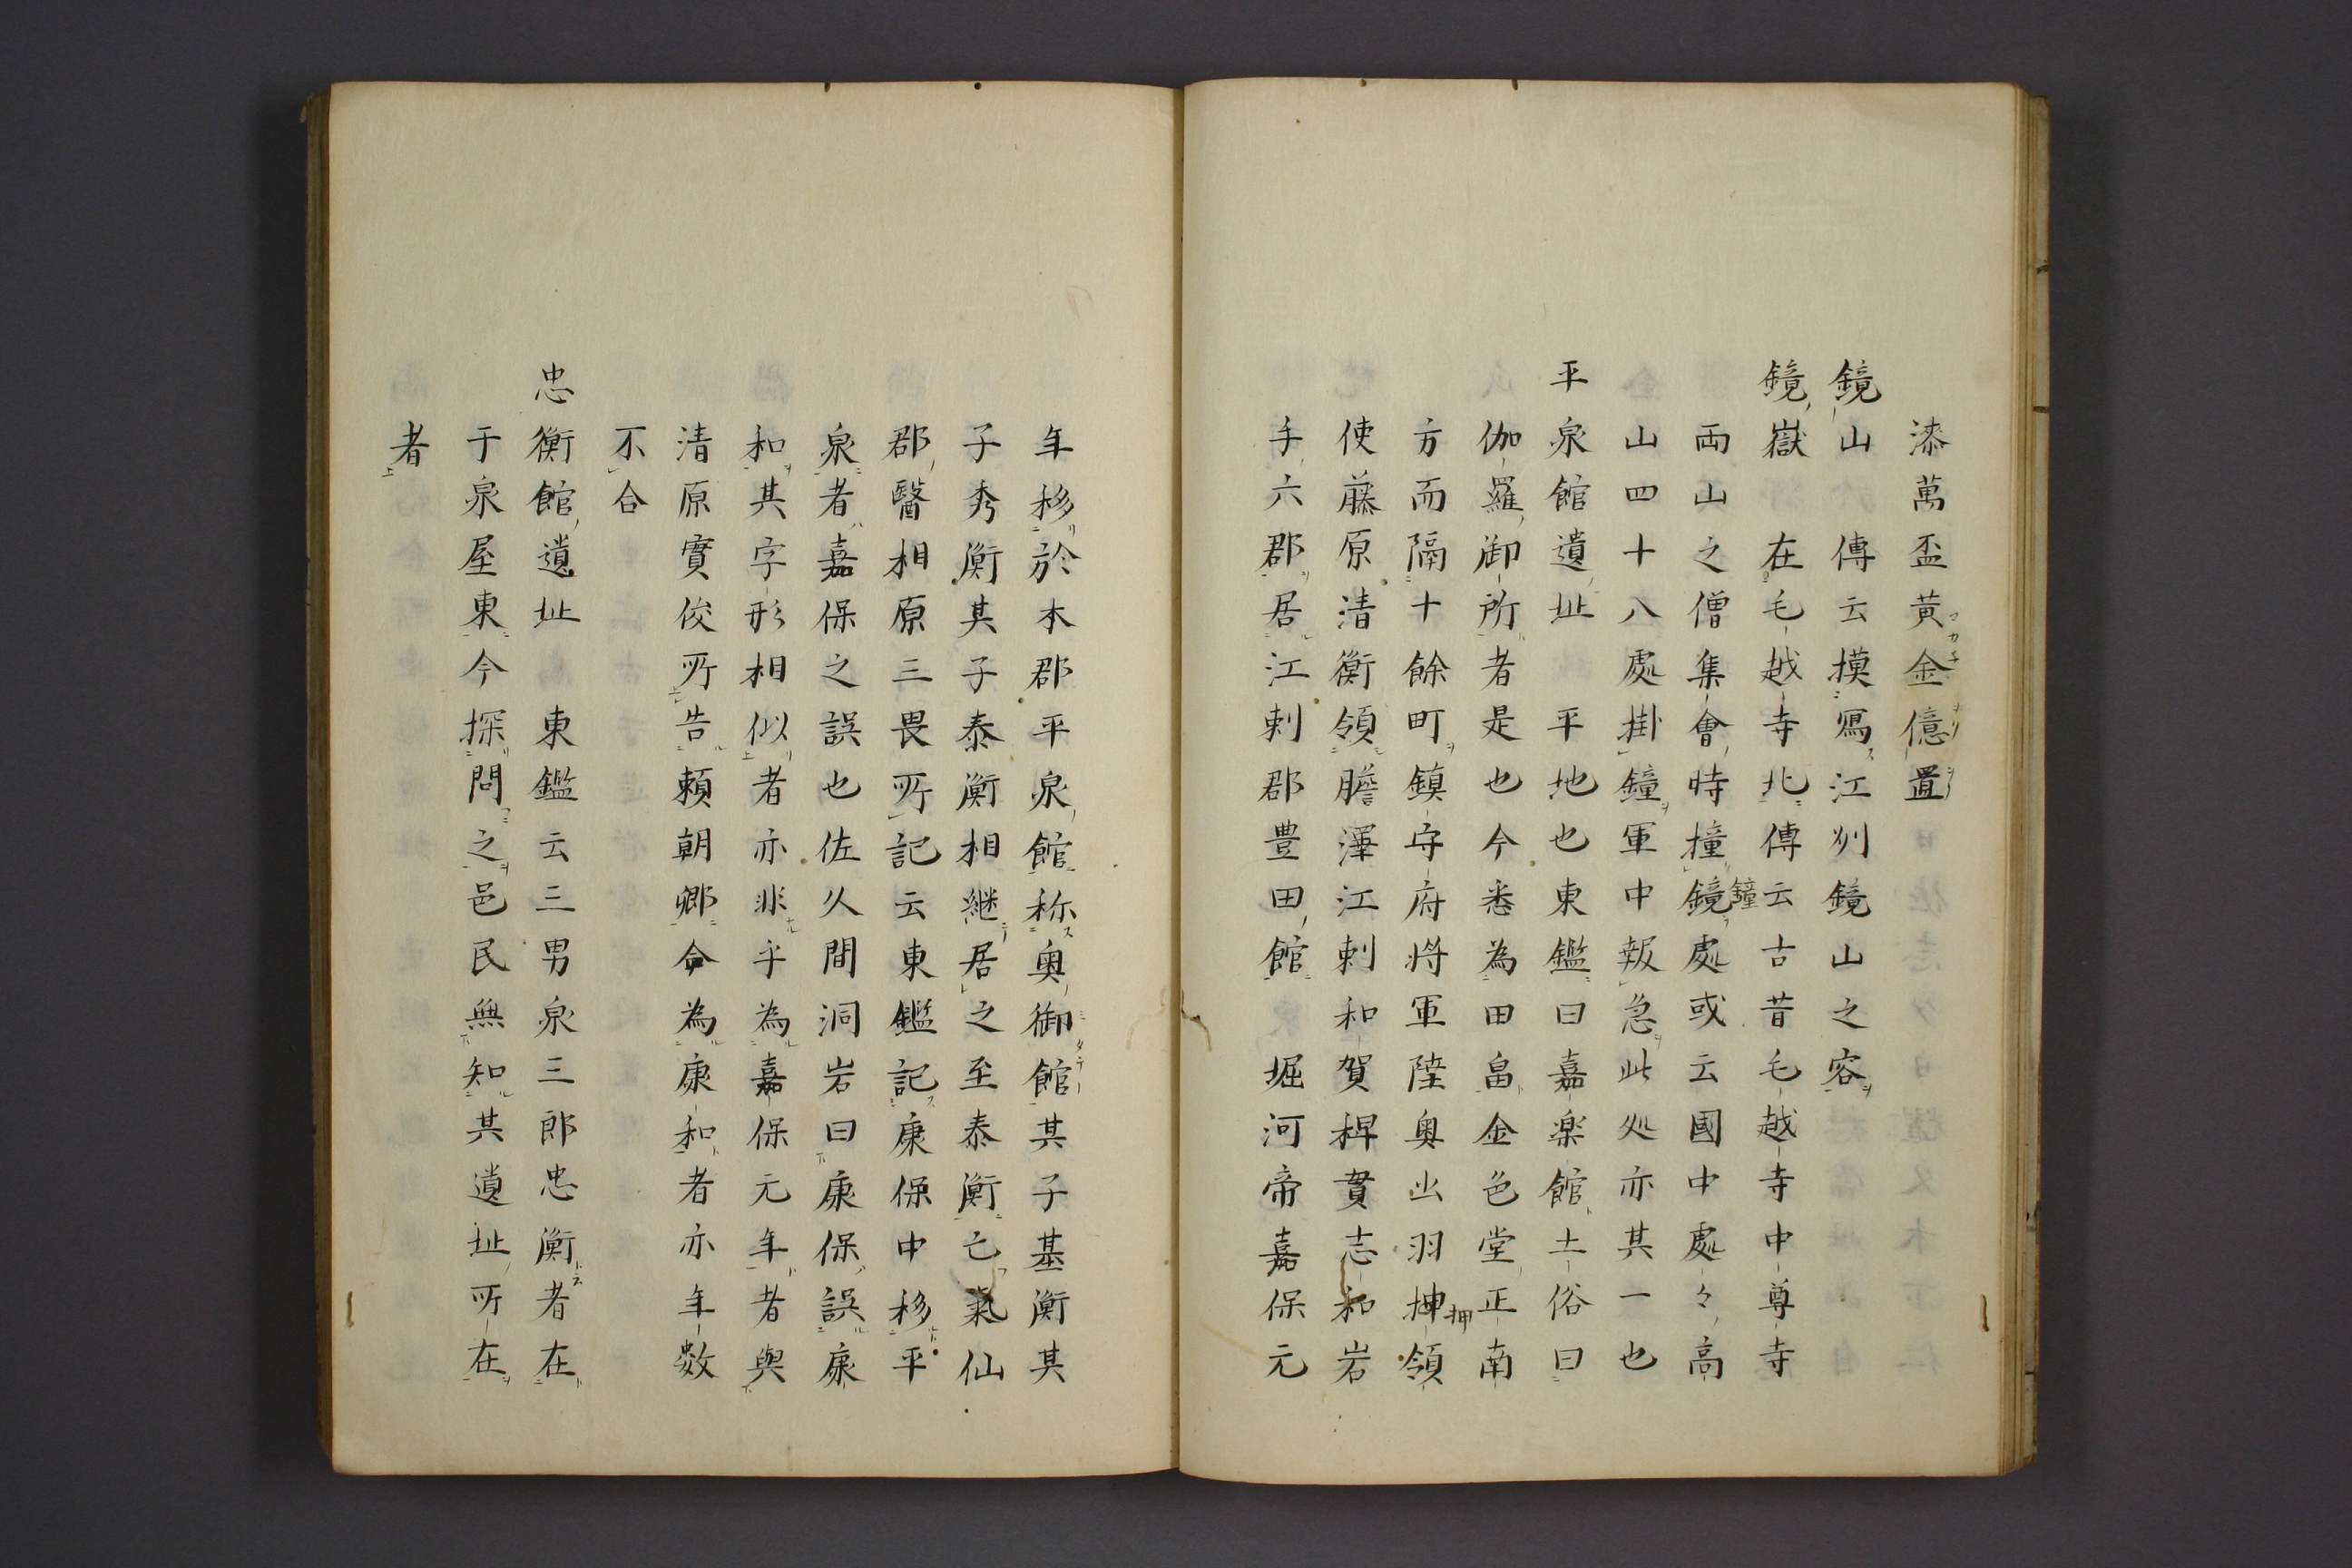 漆萬盃黄金億置
鏡山 傳云摸寫江州鏡山之容
鏡嶽 在毛越寺北傳云古昔毛越寺中尊寺
兩山之僧集會時撞鏡鐘處或云國中處々高
山四十八處掛鐘軍中報急此処亦其一也
平泉館遺址 平地也東鑑曰嘉楽館土俗曰
伽羅御所者是也今悉為田畠金色堂正南
方而隔十餘町鎮守府将軍陸奥出羽抻押領
使藤原清衡領膽澤江刺和賀稗貫志和岩
手六郡居江刺郡豊田館 堀河帝嘉保元
年移於本郡平泉館称奥御館其子基衡其
子秀衡其子泰衡相継居之至泰衡亡氣仙
郡醫相原三畏所記云東鑑記康保中移平
泉者嘉保之誤也佐久間洞岩曰康保誤康
和其字形相似者亦非乎為嘉保元年者與
清原實俊所告頼朝卿命為康和者亦年数
不合
忠衡館遺址 東鑑云三男泉三郎忠衡者在
于泉屋東今探問之邑民無知其遺址所在
者